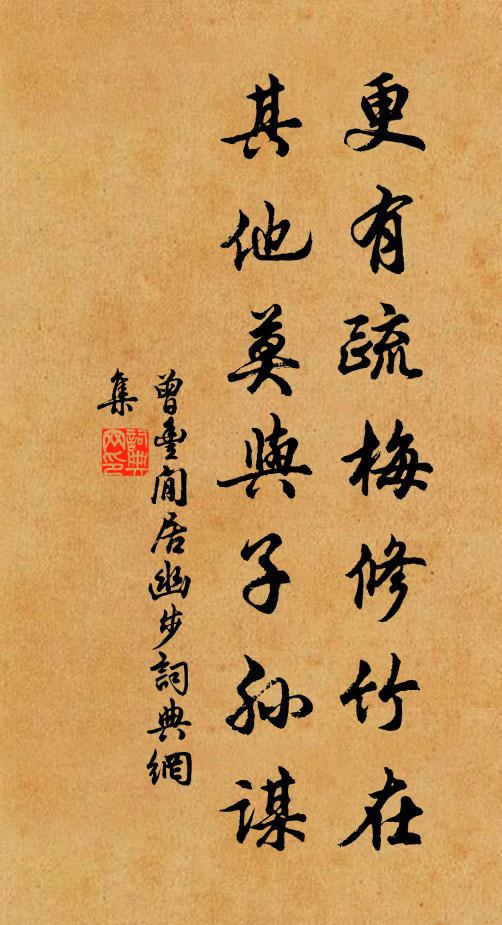 更有疏梅修竹在
其他莫與子孫謀
曾豐閒居幽步詞典網
集
詞典
網印